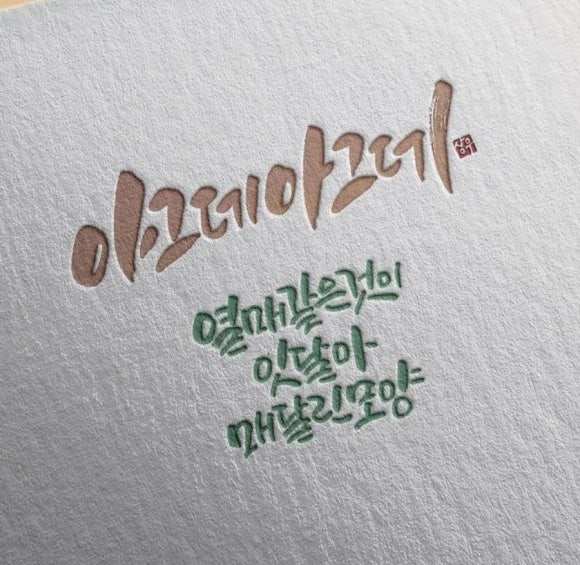 아그데아그데
열매같은것이
잇달아
매달린모양